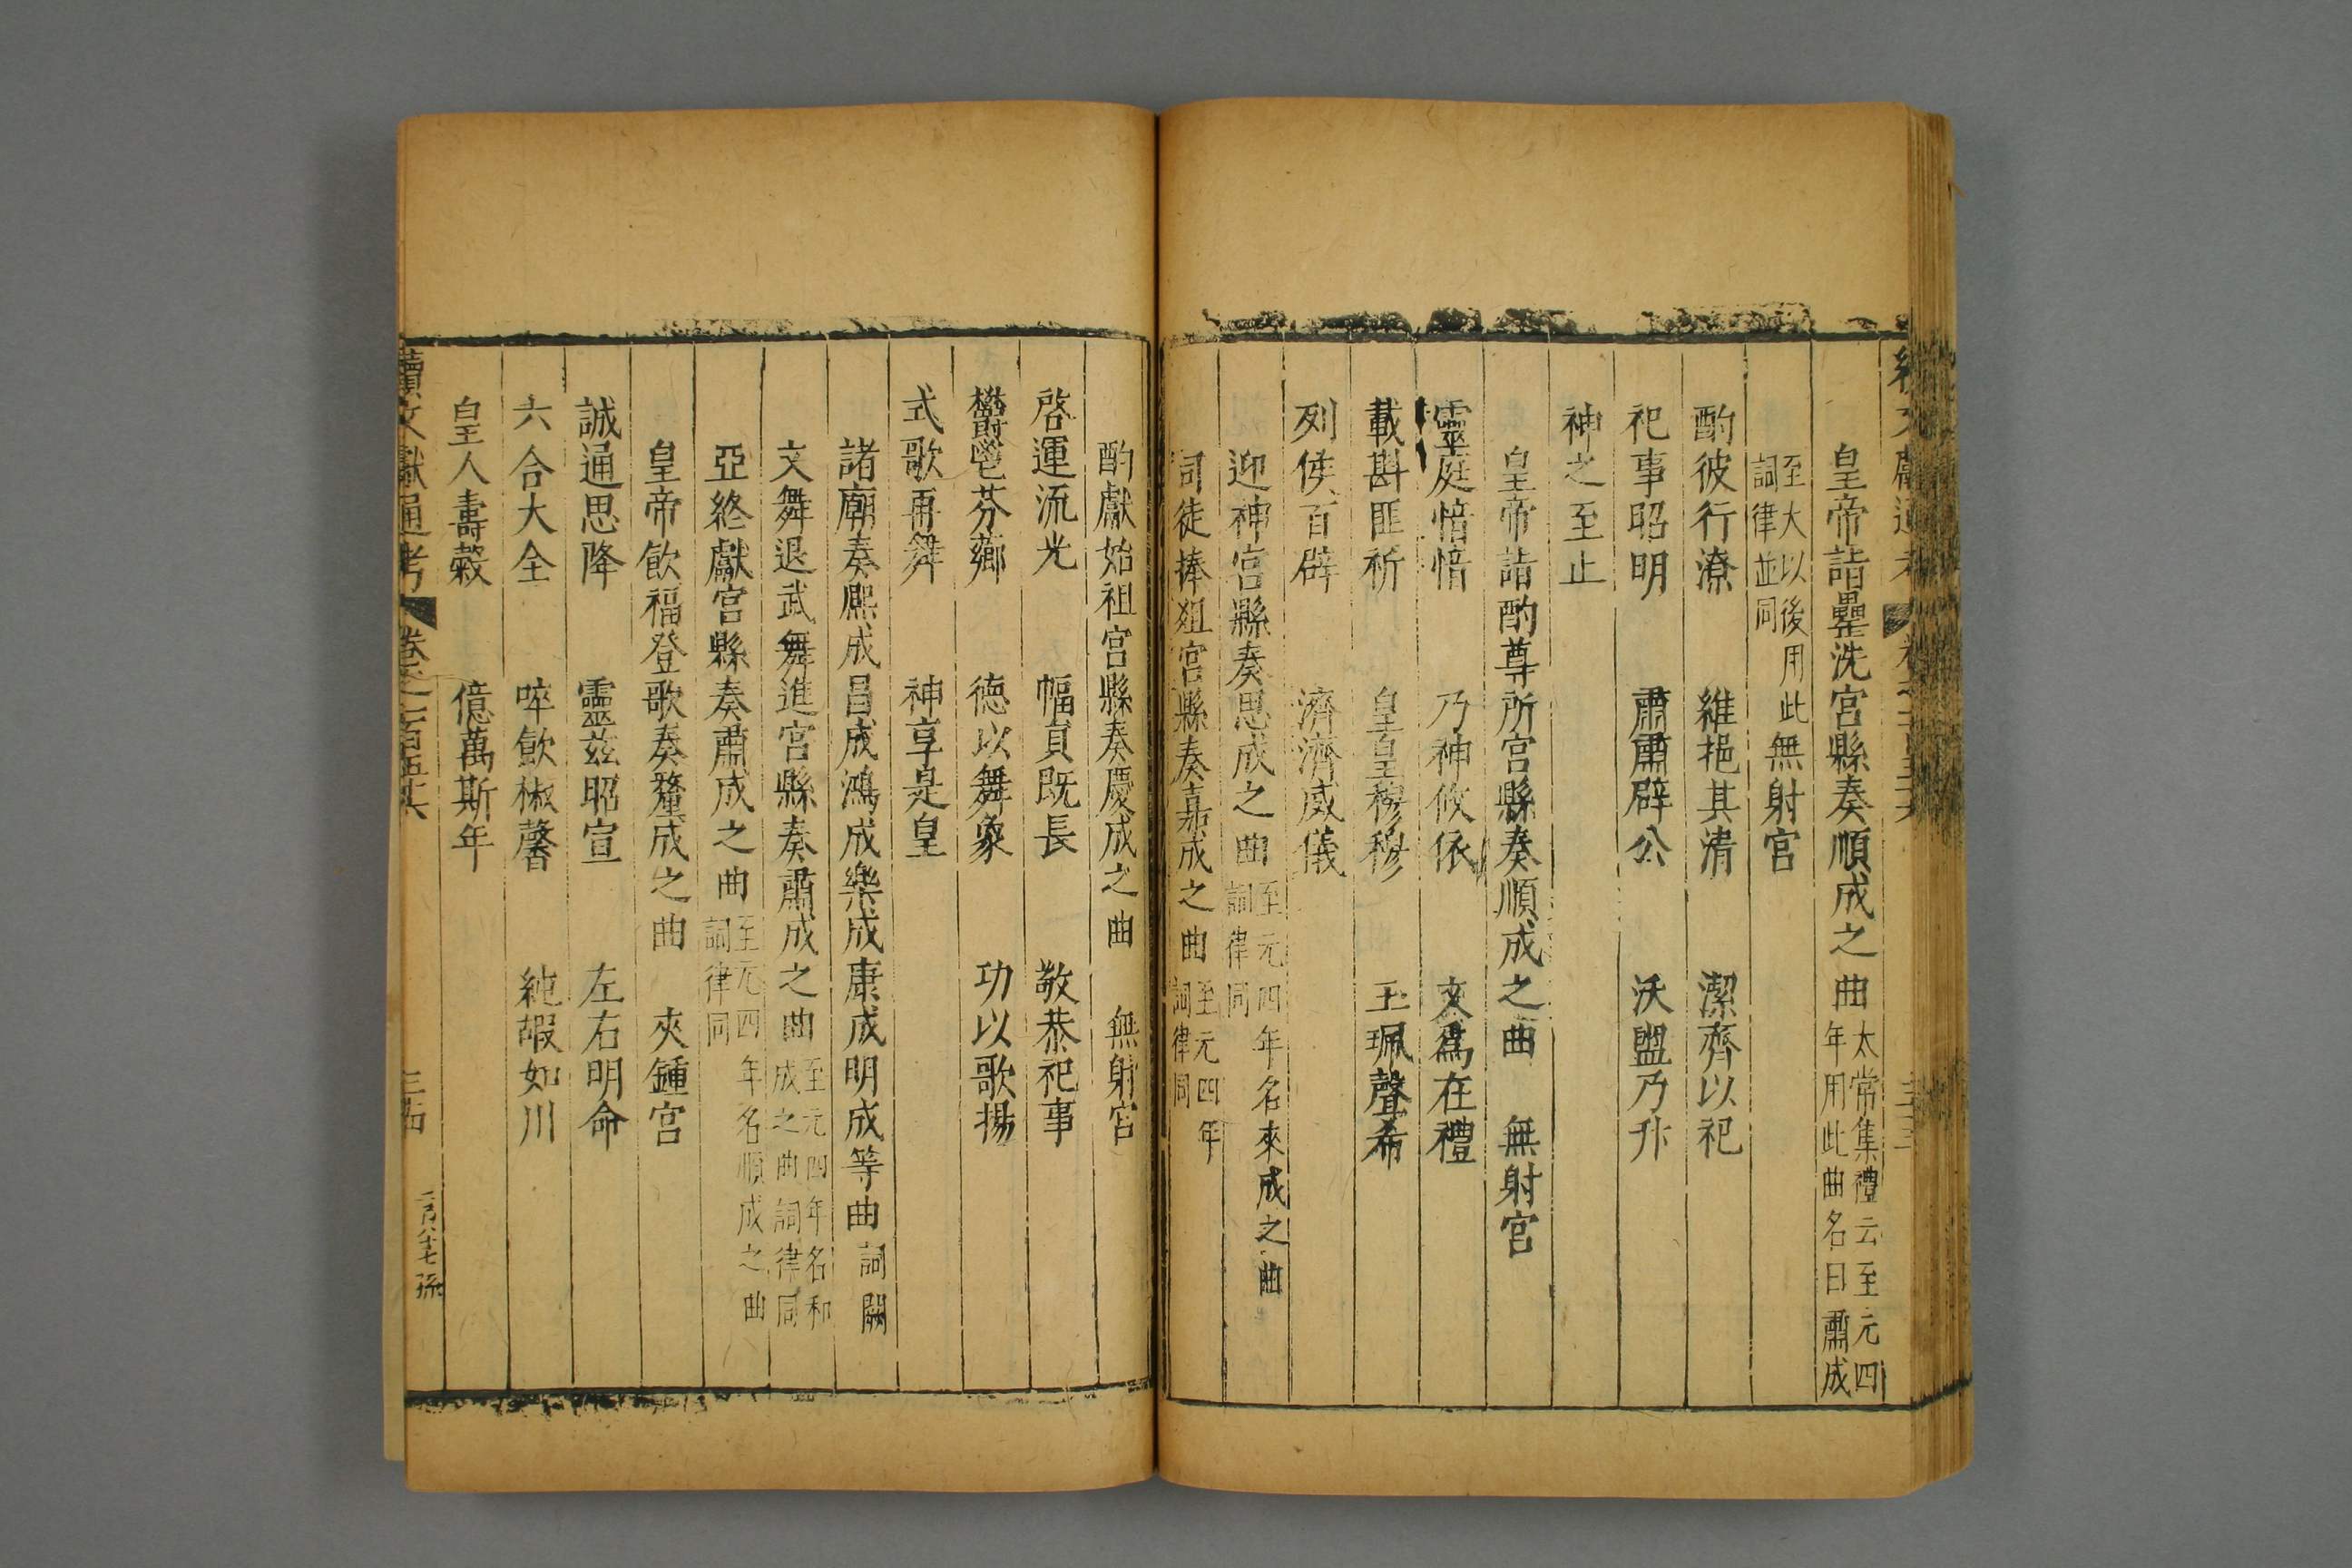 皇帝詣罍洗宮縣奏順成之曲太常集禮云至元四年用此曲名曰肅成
至大以後用此詞律並同 無射宮
酌彼行潦 維挹其清 潔齊以祀
祀事昭明 肅肅辟公 沃盥乃升
神之至止
皇帝詣酌尊所宮縣奏順成之曲 無射宮
靈庭愔愔 乃神攸依 文爲在禮
載斟匪祈 皇皇穆穆 玉珮聲希
列侯百辟 濟濟威儀
迎神宮縣奏思成之曲至元四年名來成之曲詞律同
司徒捧俎宮縣奏嘉成之曲至元四年詞律同
酌獻始祖宮縣奏慶成之曲 無射宮
啓運流光 幅員既長 敬恭祀事
鬱鬯芬薌 德以舞象 功以歌揚
式歌再舞 神享是皇
諸廟奏熙成昌成鴻成樂成康成明成等曲詞闕
文舞退武舞進宮縣奏肅成之曲至元四年名和成之曲詞律同
亞終獻宮縣奏肅成之曲至元四年名順成之曲詞律同
皇帝飲福登歌奏釐成之曲 夾鍾宮
誠通思降 靈茲昭宣 左右明命
六合大全 啐飲椒馨 純嘏如川
皇人壽穀 億萬斯年
續文獻通考 卷之一百五十六 三十四